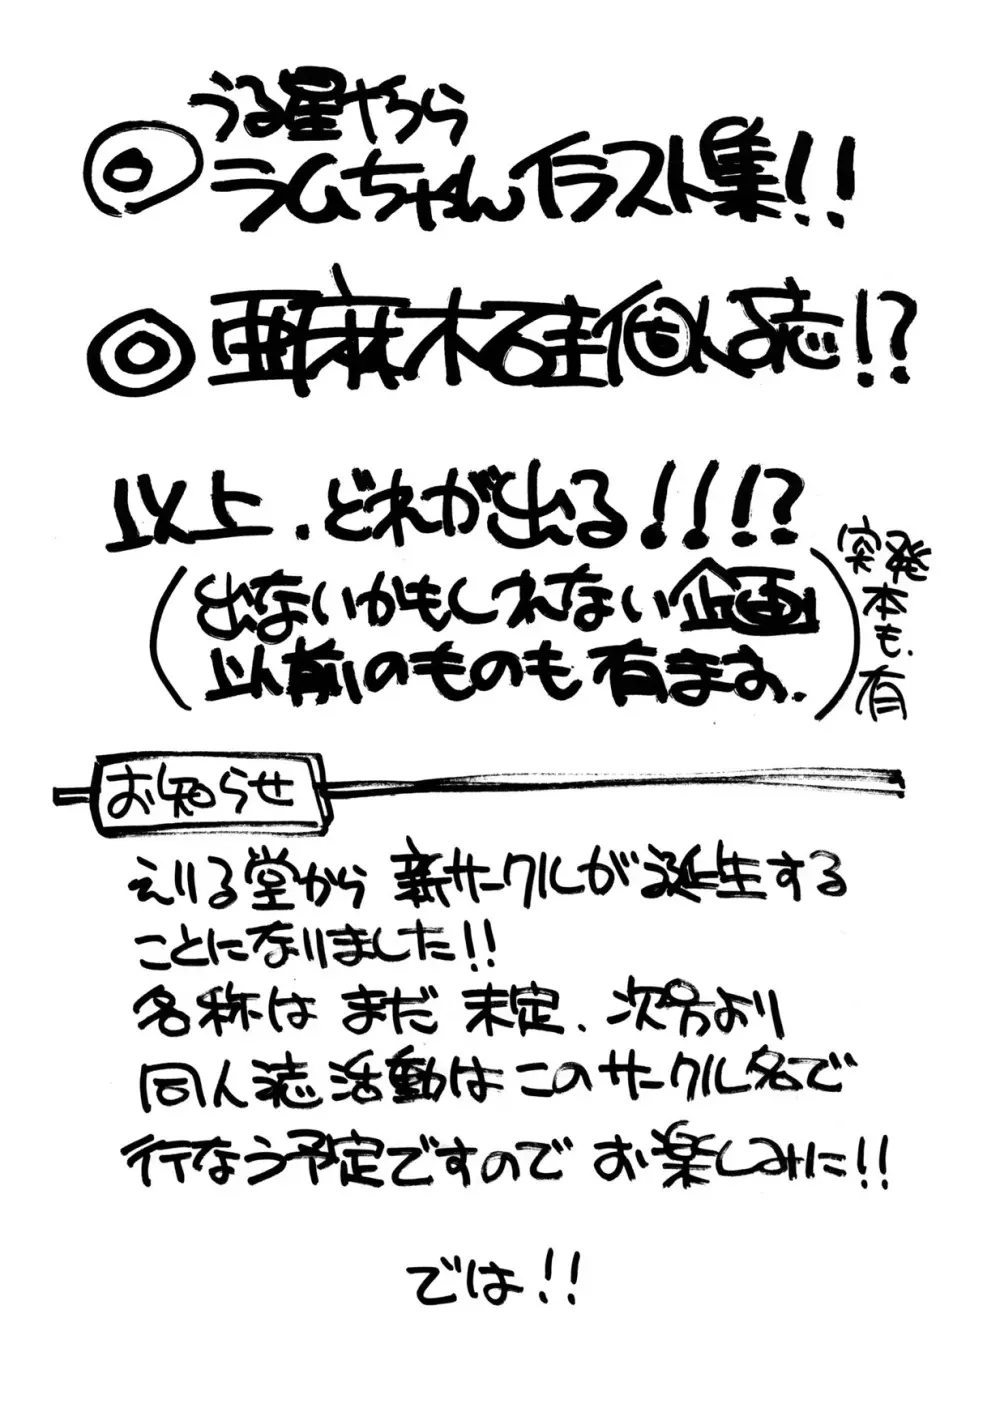 ◎うる星やつら
ラムちゃんイラスト集!!
◎亜麻木硅個人誌!?
以上.どれが出る!!!?
(出ないかもしれない企画
以前のものも有ます.)
突発本も.有
お知らせ
えりる堂から 新サークルが誕生する
ことになりました!!
名称は まだ 未定.次号より
同人誌活動は このサークル名で
行なう予定ですので お楽しみに!!
では!!